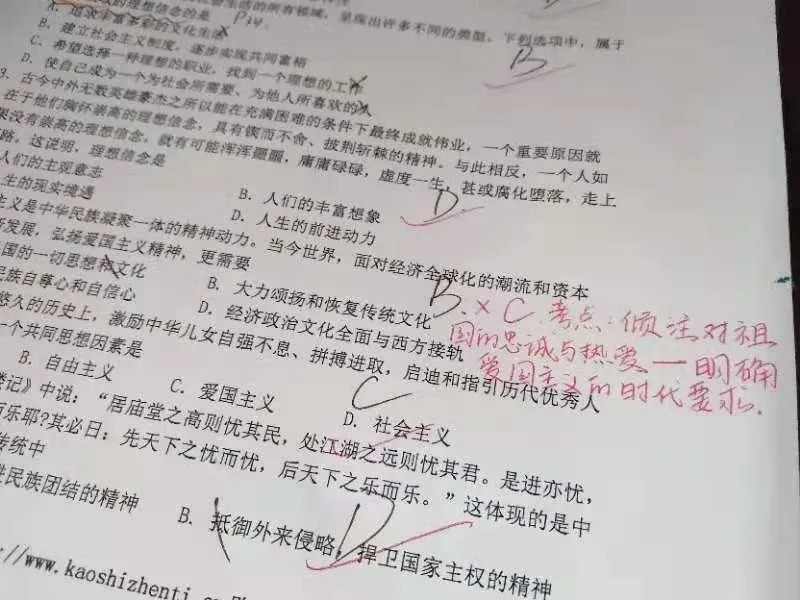 的理想信念的是
社会生活的所有领域,呈现出许多不同的类型。下列选项中,属于
A. 追求丰富多彩的文化生活
B
B. 建立社会主义制度,逐步实现共同富裕
C. 希望选择一种理想的职业,找到一个理想的工作
D. 使自己成为一个为社会所需要、为他人所喜欢的人
3. 古今中外无数英雄豪杰之所以能在充满困难的条件下最终成就伟业,一个重要原因就
在于他们胸怀崇高的理想信念,具有锲而不舍、披荆斩棘的精神。与此相反,一个人如
果没有崇高的理想信念,就有可能浑浑噩噩,庸庸碌碌,虚度一生,甚或腐化堕落,走上
路。这说明,理想信念是
D
人们的主观意志
B. 人们的丰富想象
生的现实境遇
D. 人生的前进动力
主义是中华民族凝聚一体的精神动力。当今世界,面对经济全球化的潮流和资本
发展,弘扬爱国主义精神,更需要
国的一切思想和文化
B. 大力颂扬和恢复传统文化
民族自尊心和自信心
D. 经济政治文化全面与西方接轨
B. × C 考点:倾注对祖
国的忠诚与热爱—明确
爱国主义的时代要求.
悠久的历史上,激励中华儿女自强不息、拼搏进取,启迪和指引历代优秀人
一个共同思想因素是
C
B. 自由主义
C. 爱国主义
D. 社会主义
楼记》中说:“居庙堂之高则忧其民,处江湖之远则忧其君。是进亦忧,
而乐耶?其必曰:先天下之忧而忧,后天下之乐而乐。”这体现的是中
传统中
D
民族团结的精神
B. 抵御外来侵略,捍卫国家主权的精神
//www.kaoshizhenti.